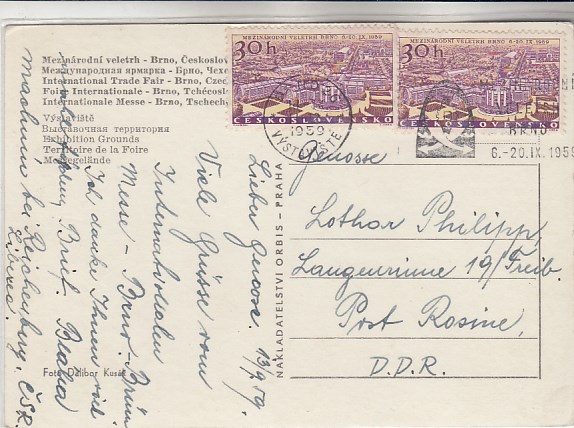 Mezinárodní veletrh - Brno, Českoslov
Международная ярмарка - Брно, Чехо
International Trade Fair - Brno, Czec
Foire Internationale - Brno, Tchécos
Internationale Messe - Brno, Tschech
Výstaviště
Выставочная территория
Exhibition Grounds
Territoire de la Foire
Messegelände
30h
MEZINÁRODNÍ VELETRH BRNO 6-20.IX.1959
ČESKOSLOVENSKO
30h
MEZINÁRODNÍ VELETRH BRNO 6-20.IX.1959
ČESKOSLOVENSKO
1959
VÝSTAVIŠTĚ
BRNO
6.-20.IX.1959
Genosse
Lothar Philipp,
Langenrinne 19/Freib.
Post Rosine,
D.D.R.
NAKLADATELSTVÍ ORBIS - PRAHA
Lieber Genosse. 13/9.59.
Viele Grüsse vom
Internationalen
Messe - Brno-Brünn
Ich danke Ihnen viel
Brief. Blaha
Machnín bei Reichenberg, ČSR.
Liberec.
Foto Dalibor Kusák